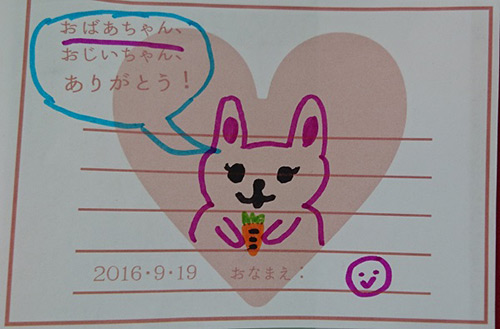 おばあちゃん、
おじいちゃん、
ありがとう！
2016・9・19 おなまえ：